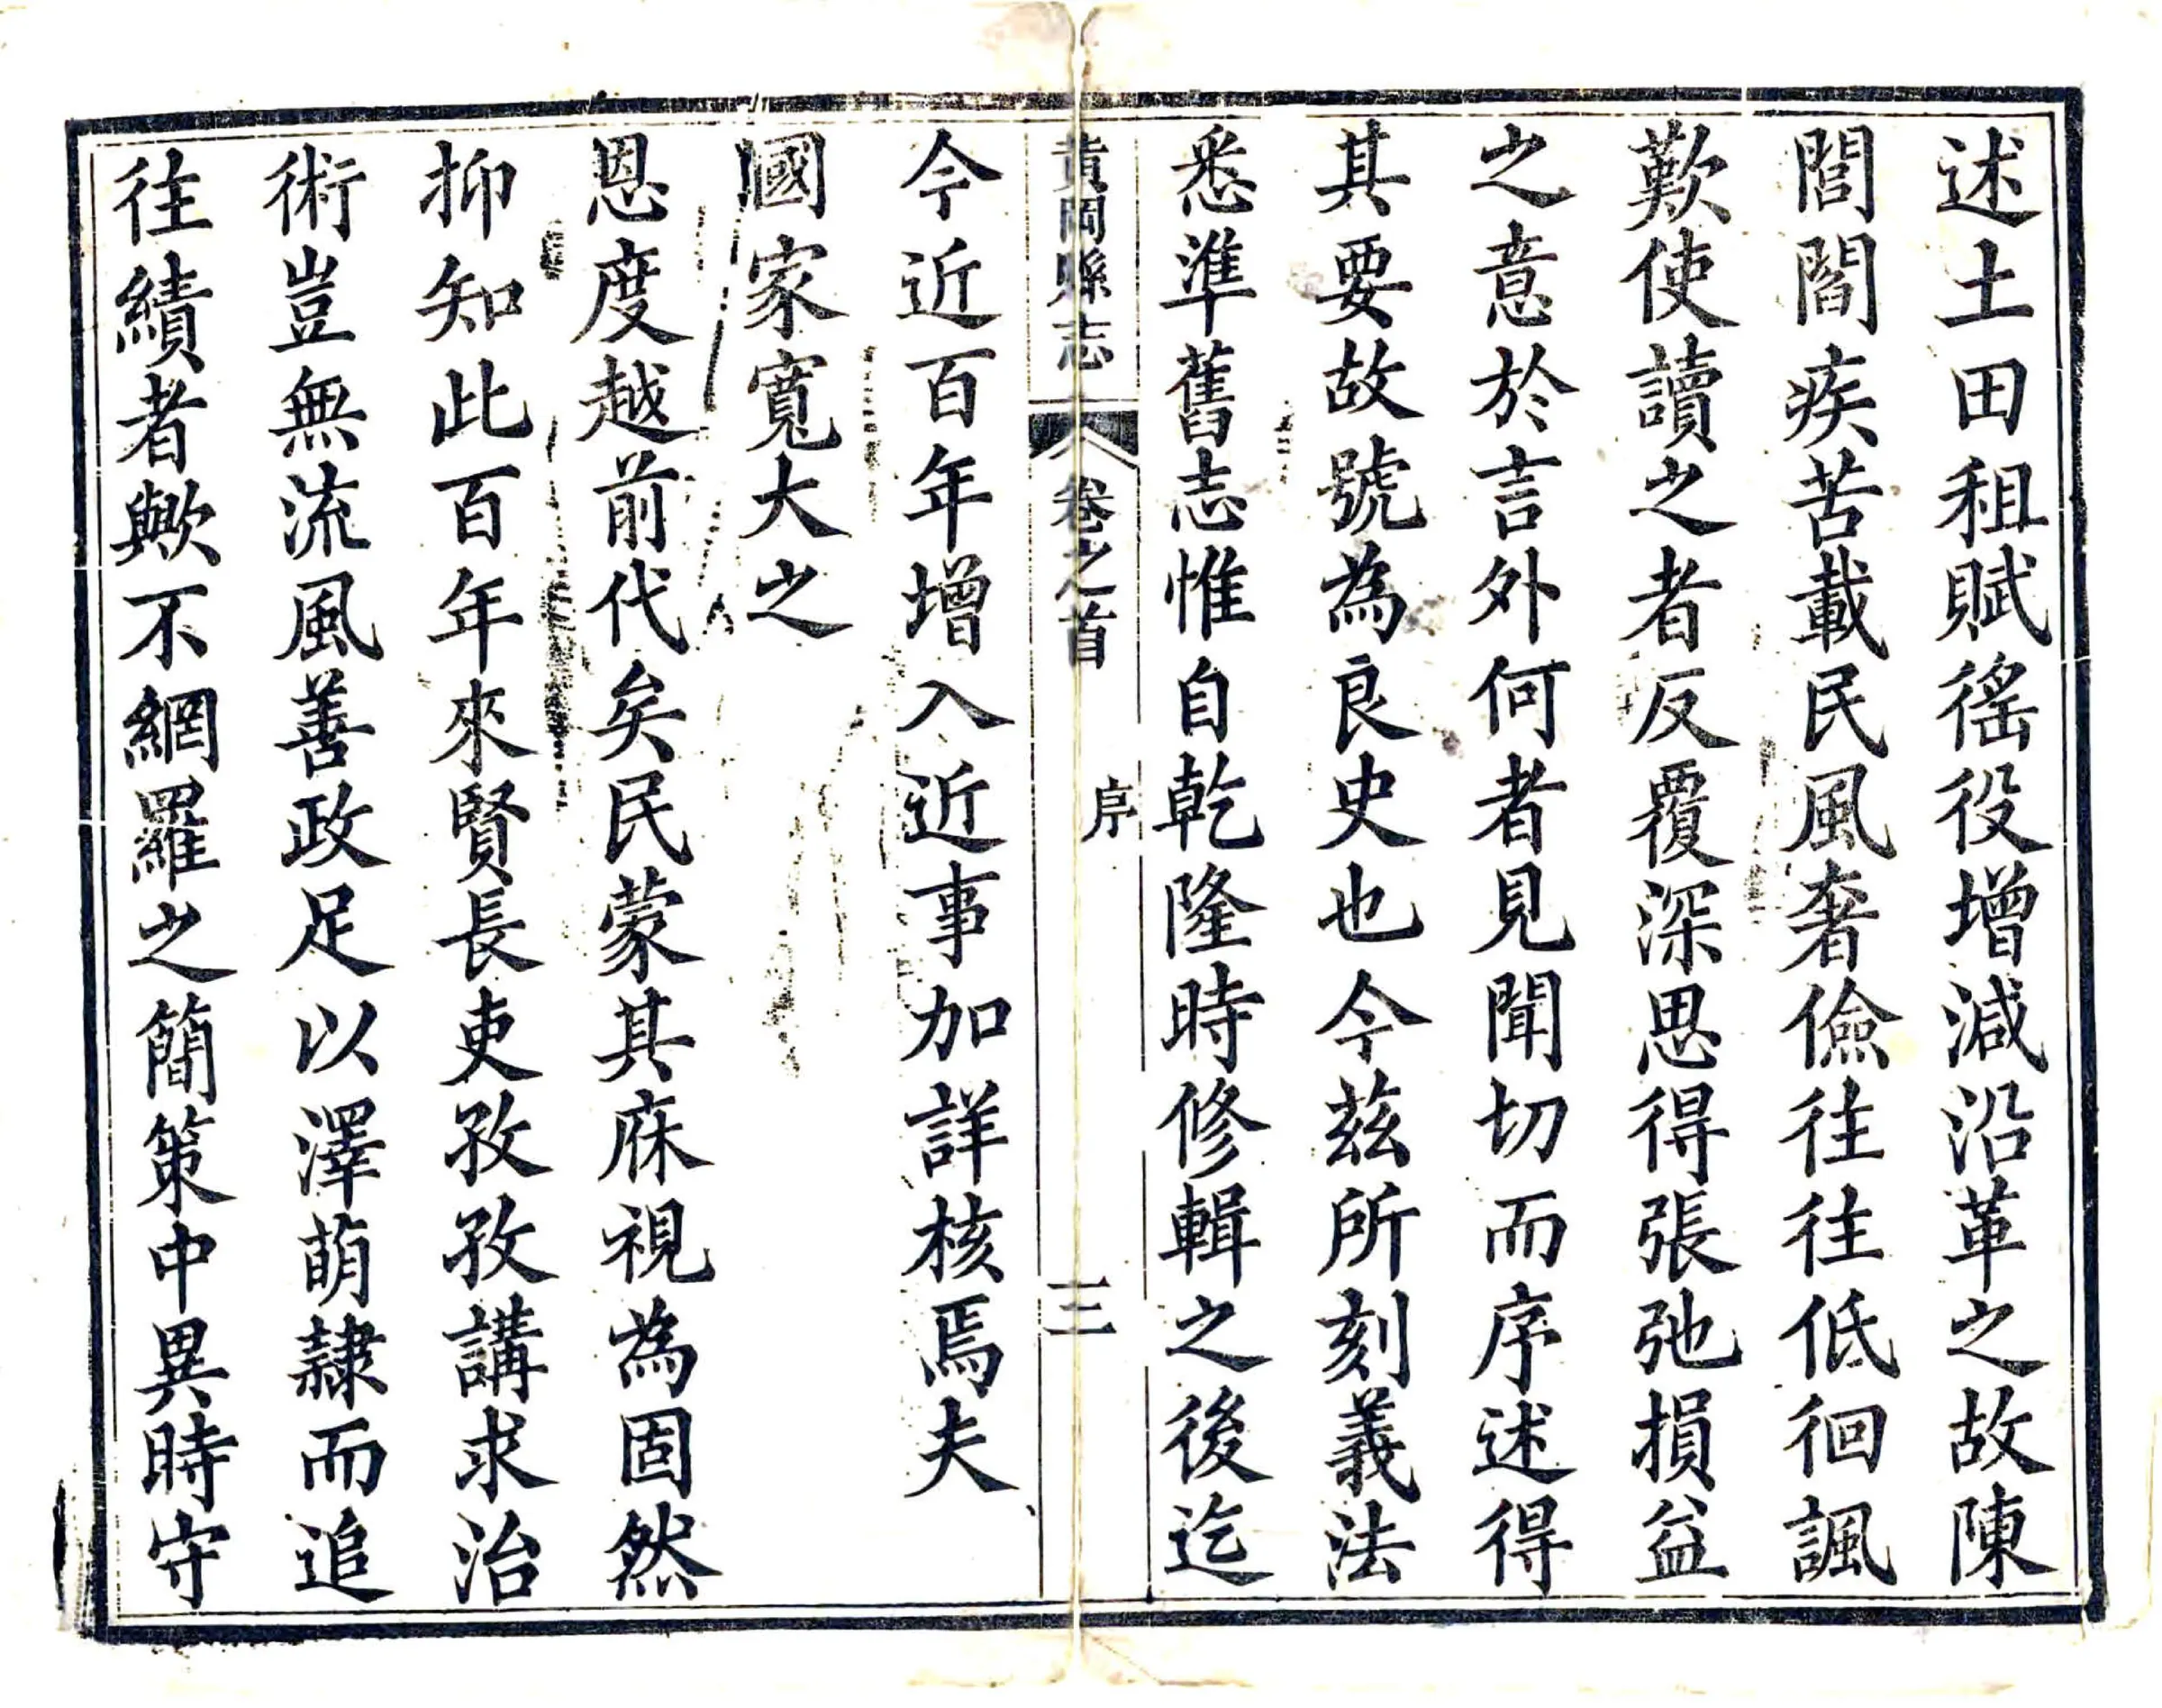 述土田租賦徭役增減沿革之故陳
閭閻疾苦載民風奢儉往往低徊諷
歎使讀之者反覆深思得張弛損益
之意於言外何者見聞切而序述得
其要故號為良史也今茲所刻義法
悉準舊志惟自乾隆時修輯之後迄
黃岡縣志 卷之首 序 三
今近百年增入近事加詳核焉夫
國家寬大之
恩度越前代矣民蒙其庥視為固然
抑知此百年來賢長吏孜孜講求治
術豈無流風善政足以澤萌隸而追
往績者歟不網羅之簡策中異時守